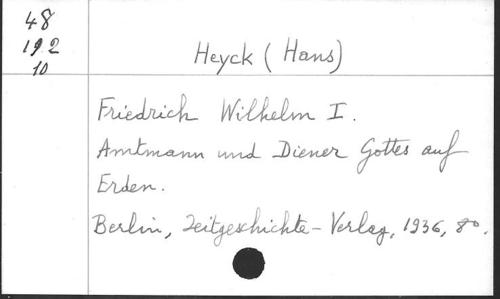 48
192
10
Heyck (Hans)
Friedrich Wilhelm I.
Amtmann und Diener Gottes auf
Erden.
Berlin, Zeitgeschichte-Verlag, 1936, 8o.